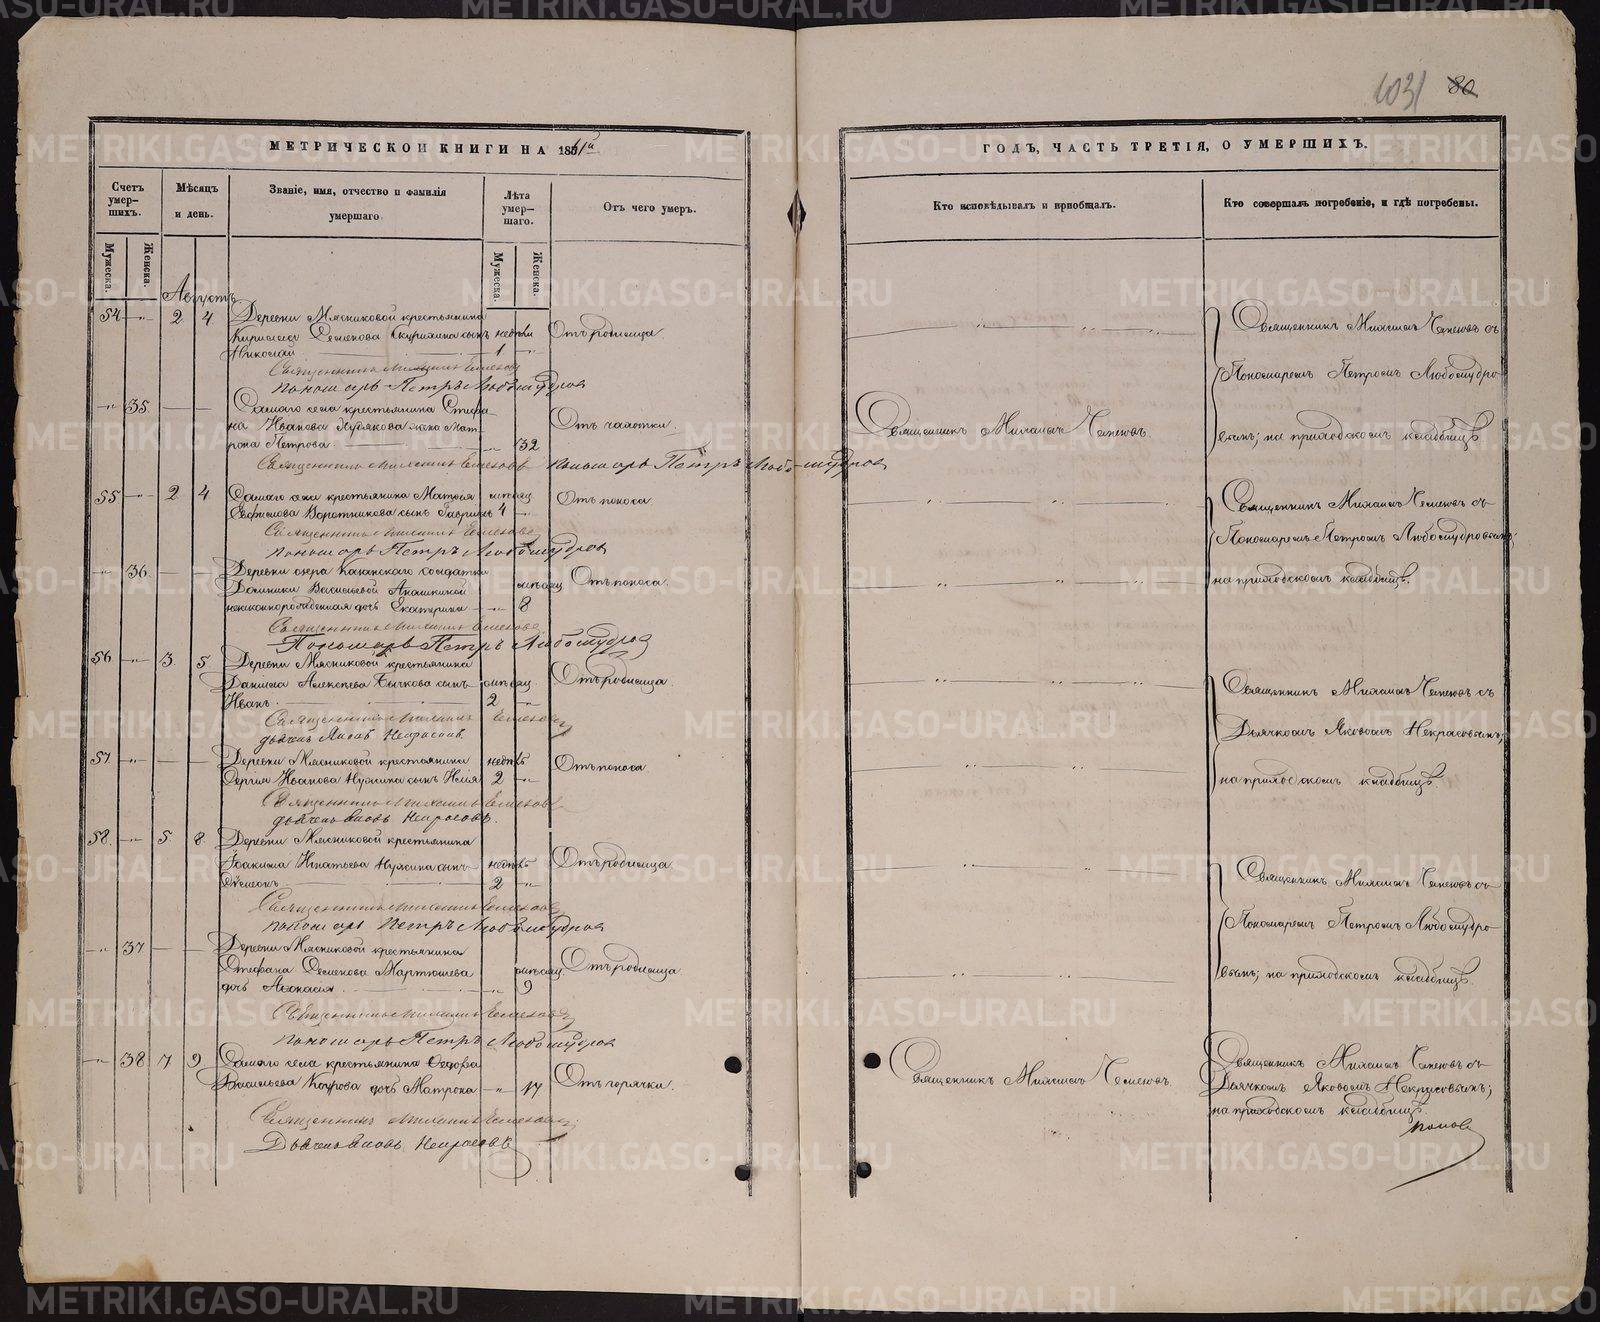 1031 80
МЕТРИЧЕСКОЙ КНИГИ НА 1861й
ГОДЪ, ЧАСТЬ ТРЕТІЯ, О УМЕРШИХЪ.
Счетъ умер-шихъ.
Мѣсяцъ и день.
Званіе, имя, отчество и фамилія умершаго.
Лѣта умер-шаго.
Отъ чего умеръ.
Кто исповѣдывалъ и пріобщалъ.
Кто совершалъ погребеніе, и гдѣ погребены.
Мужеска. Женска.
Мужеска. Женска.
Августъ
54 -„- 2 4 Деревни Мясниковой крестьянина
Кирилла Семенова сынъ недѣли Отъ родимца
Николай 1 -„-
Священникъ Михаилъ
пономарь Петръ Любомудровъ
Священникъ Михаилъ съ
Пономаремъ Петромъ Любомудро
вымъ; на приходскомъ кладбищѣ
-„- 35 — — Самаго села крестьянина Стефа-
на Иванова жена Мат- Отъ чахотки.
рона Петрова -„- 32
Священникъ Михаилъ
Священникъ Михаилъ пономарь Петръ Любомудровъ
55 -„- 2 4 Самаго села крестьянина Матѳея мѣсяц Отъ поноса
Евфимова Воротникова сынъ Гавріилъ 4 -„-
Священникъ Михаилъ
пономарь Петръ Любомудровъ
Священникъ Михаилъ съ
Пономаремъ Петромъ Любомудровымъ;
на приходскомъ кладбищѣ.
-„- 36 — — Деревни озера Казанскаго солдатки
Домники Васильевой мѣсяц Отъ поноса.
незаконнорожденная дочь Екатерина -„- 8
Священникъ Михаилъ
Пономарь Петръ Любомудровъ
56 -„- 3 5 Деревни Мясниковой крестьянина
Даніила Алексѣева Бычкова сынъ мѣсяц. Отъ родимца.
Иванъ 2 -„-
Священникъ Михаилъ
дьячекъ Яковъ Некрасовъ
Священникъ Михаилъ съ
Дьячкомъ Яковомъ Некрасовымъ;
на приходскомъ кладбищѣ.
57 -„- — — Деревни Мясниковой крестьянина недѣль Отъ поноса
Сергія Иванова сынъ Илія 2 -„-
Священникъ Михаилъ
дьячекъ Яковъ Некрасовъ.
58 -„- 5 8 Деревни Мясниковой крестьянина
Іоакима Игнатьева сынъ недѣль Отъ родимца
Симеонъ 2 -„-
Священникъ Михаилъ
пономарь Петръ Любомудровъ
Священникъ Михаилъ съ
Пономаремъ Петромъ Любомудро
вымъ; на приходскомъ кладбищѣ.
-„- 37 — — Деревни Мясниковой крестьянина
Стефана Семенова Мартюшева мѣсяц. Отъ родимца
дочь Аѳанасія -„- 9
Священникъ Михаилъ
пономарь Петръ Любомудровъ
-„- 38 7 9 Самаго села крестьянина Ѳедора
Васильева дочь Матрона -„- 17 Отъ горячки.
Священникъ Михаилъ
Дьячекъ Яковъ Некрасовъ
Священникъ Михаилъ
Священникъ Михаилъ съ
Дьячкомъ Яковомъ Некрасовымъ;
на приходскомъ кладбищѣ.
METRIKI.GASO-URAL.RU